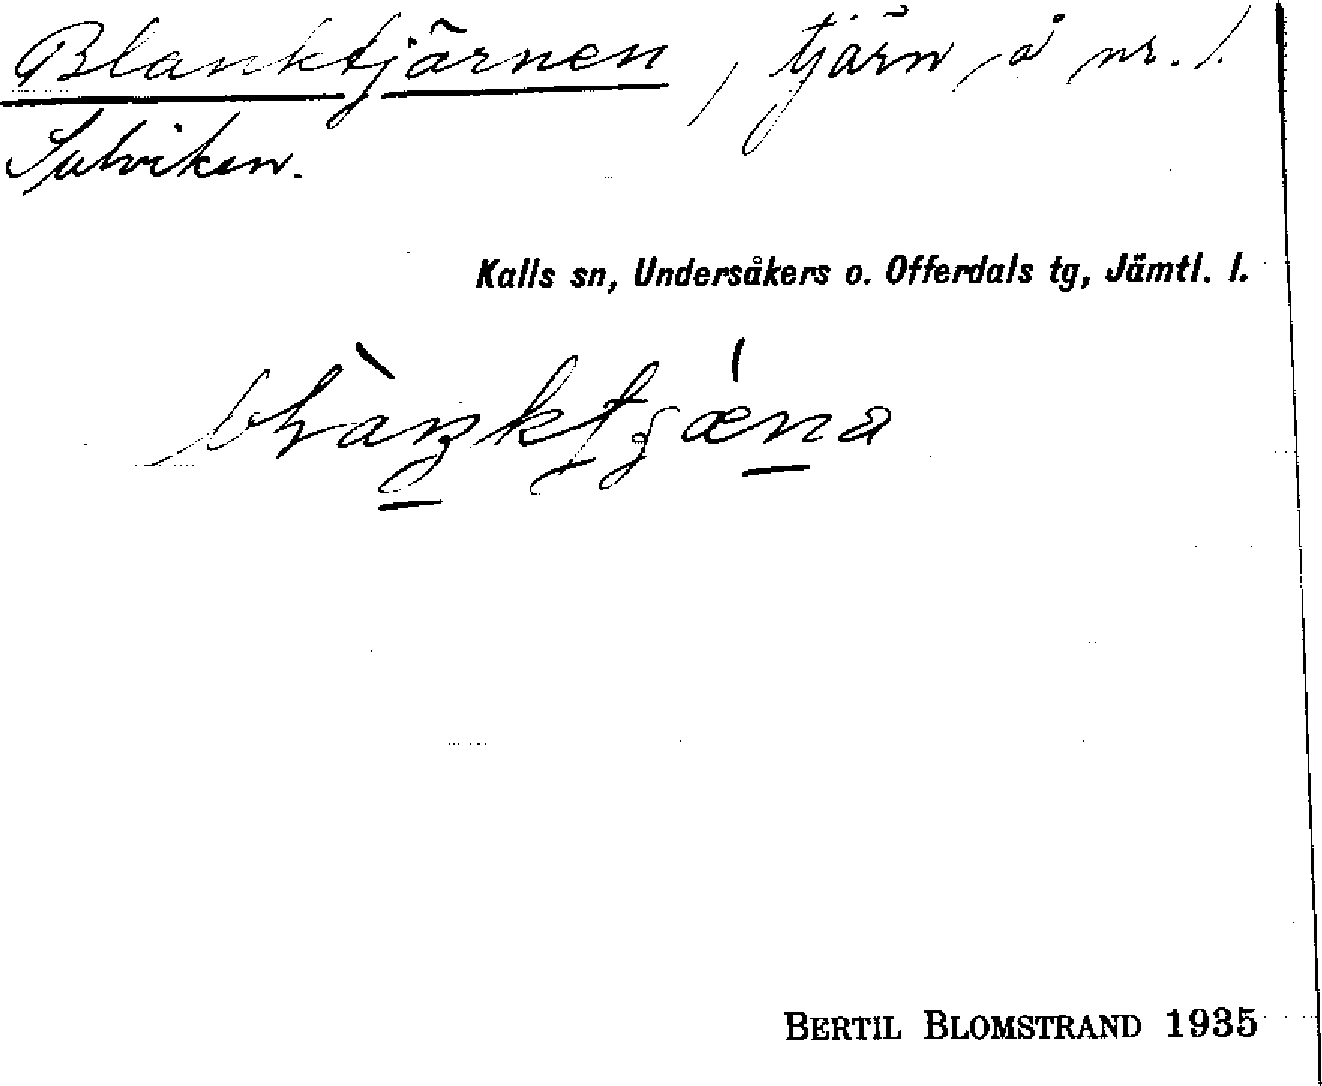 Blanktjärnen, tjärn å nr. 1.
Sulviken.
Kalls sn, Undersåkers o. Offerdals tg, Jämtl. l.
BERTIL BLOMSTRAND 1935